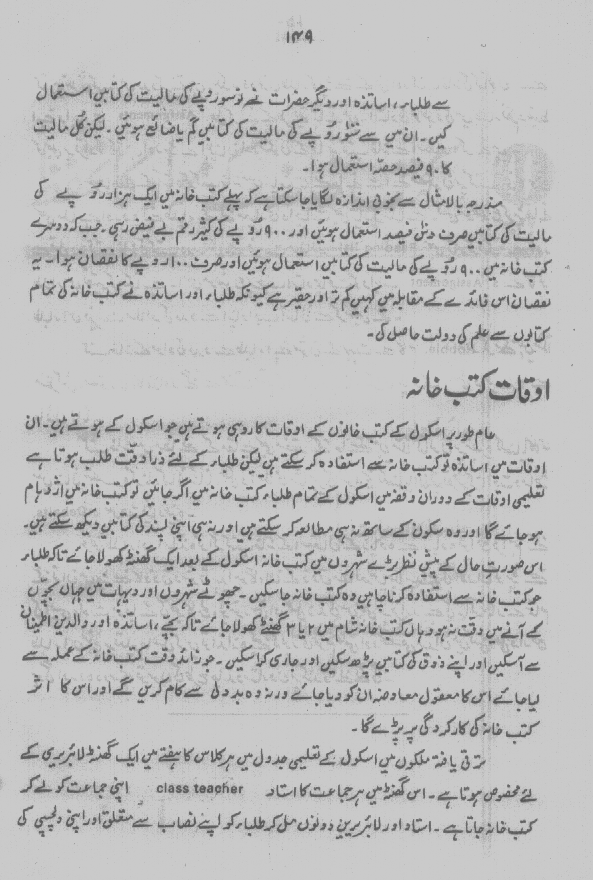 ۱۴۹
سے طلباء، اساتذہ اور دیگر حضرات نے نو سو روپے کی مالیت کی کتابیں استعمال
کیں۔ ان میں سے سو روپے کی مالیت کی کتابیں گم یا ضائع ہوئیں۔ لیکن کُل مالیت
کا ۹۰ فیصد حصّہ استعمال ہوا۔
مندرجہ بالا مثال سے بخوبی اندازہ لگایا جا سکتا ہے کہ پہلے کتب خانہ میں ایک ہزار روپے کی
مالیت کی کتابیں صرف دس فیصد استعمال ہوئیں اور ۹۰۰ روپے کی کثیر رقم بے فیض رہی۔ جب کہ دوسرے
کتب خانہ میں ۹۰۰ روپے کی مالیت کی کتابیں استعمال ہوئیں اور صرف ۱۰۰ روپے کا نقصان ہوا۔ یہ
نقصان اس فائدے کے مقابلہ میں کہیں کم تر اور حقیر ہے کیونکہ طلباء اور اساتذہ نے کتب خانہ کی تمام
کتابوں سے علم کی دولت حاصل کی۔
اوقات کتب خانہ
عام طور پر اسکول کے کتب خانوں کے اوقات کار وہی ہوتے ہیں جو اسکول کے ہوتے ہیں۔ ان
اوقات میں اساتذہ تو کتب خانہ سے استفادہ کر سکتے ہیں لیکن طلباء کے لئے ذرا دقّت طلب ہوتا ہے
تعلیمی اوقات کے دوران وقفہ میں اسکول کے تمام طلباء کتب خانہ میں اگر جائیں تو کتب خانہ میں اژدہام
ہو جائے گا اور وہ سکون کے ساتھ نہ ہی مطالعہ کر سکتے ہیں اور نہ ہی اپنی پسند کی کتابیں دیکھ سکتے ہیں۔
اس صورتِ حال کے پیشِ نظر بڑے شہروں میں کتب خانہ اسکول کے بعد ایک گھنٹہ کھولا جائے تاکہ طلباء
جو کتب خانہ سے استفادہ کرنا چاہیں وہ کتب خانہ جا سکیں۔ چھوٹے شہروں اور دیہات میں جہاں بچّوں
کے آنے میں دقت نہ ہو وہاں کتب خانہ شام میں ۲ یا ۳ گھنٹے کھولا جائے تاکہ بچّے، اساتذہ اور والدین اطمینان
سے آسکیں اور اپنے ذوق کی کتابیں پڑھ سکیں اور جاری کرا سکیں۔ جو زائد وقت کتب خانہ کے عملہ سے
لیا جائے اس کا معقول معاوضہ ان کو دیا جائے ورنہ وہ بددلی سے کام کریں گے اور اس کا اثر
کتب خانہ کی کارکردگی پر پڑے گا۔
ترقی یافتہ ملکوں میں اسکول کے تعلیمی جدول میں ہر کلاس کا ہفتے میں ایک گھنٹہ لائبریری کے
لئے مخصوص ہوتا ہے۔ اس گھنٹہ میں ہر جماعت کا استاد class teacher اپنی جماعت کو لے کر
کتب خانہ جاتا ہے۔ استاد اور لائبریرین دونوں مل کر طلباء کو اپنے نصاب سے متعلق اور اپنی دلچسپی کی